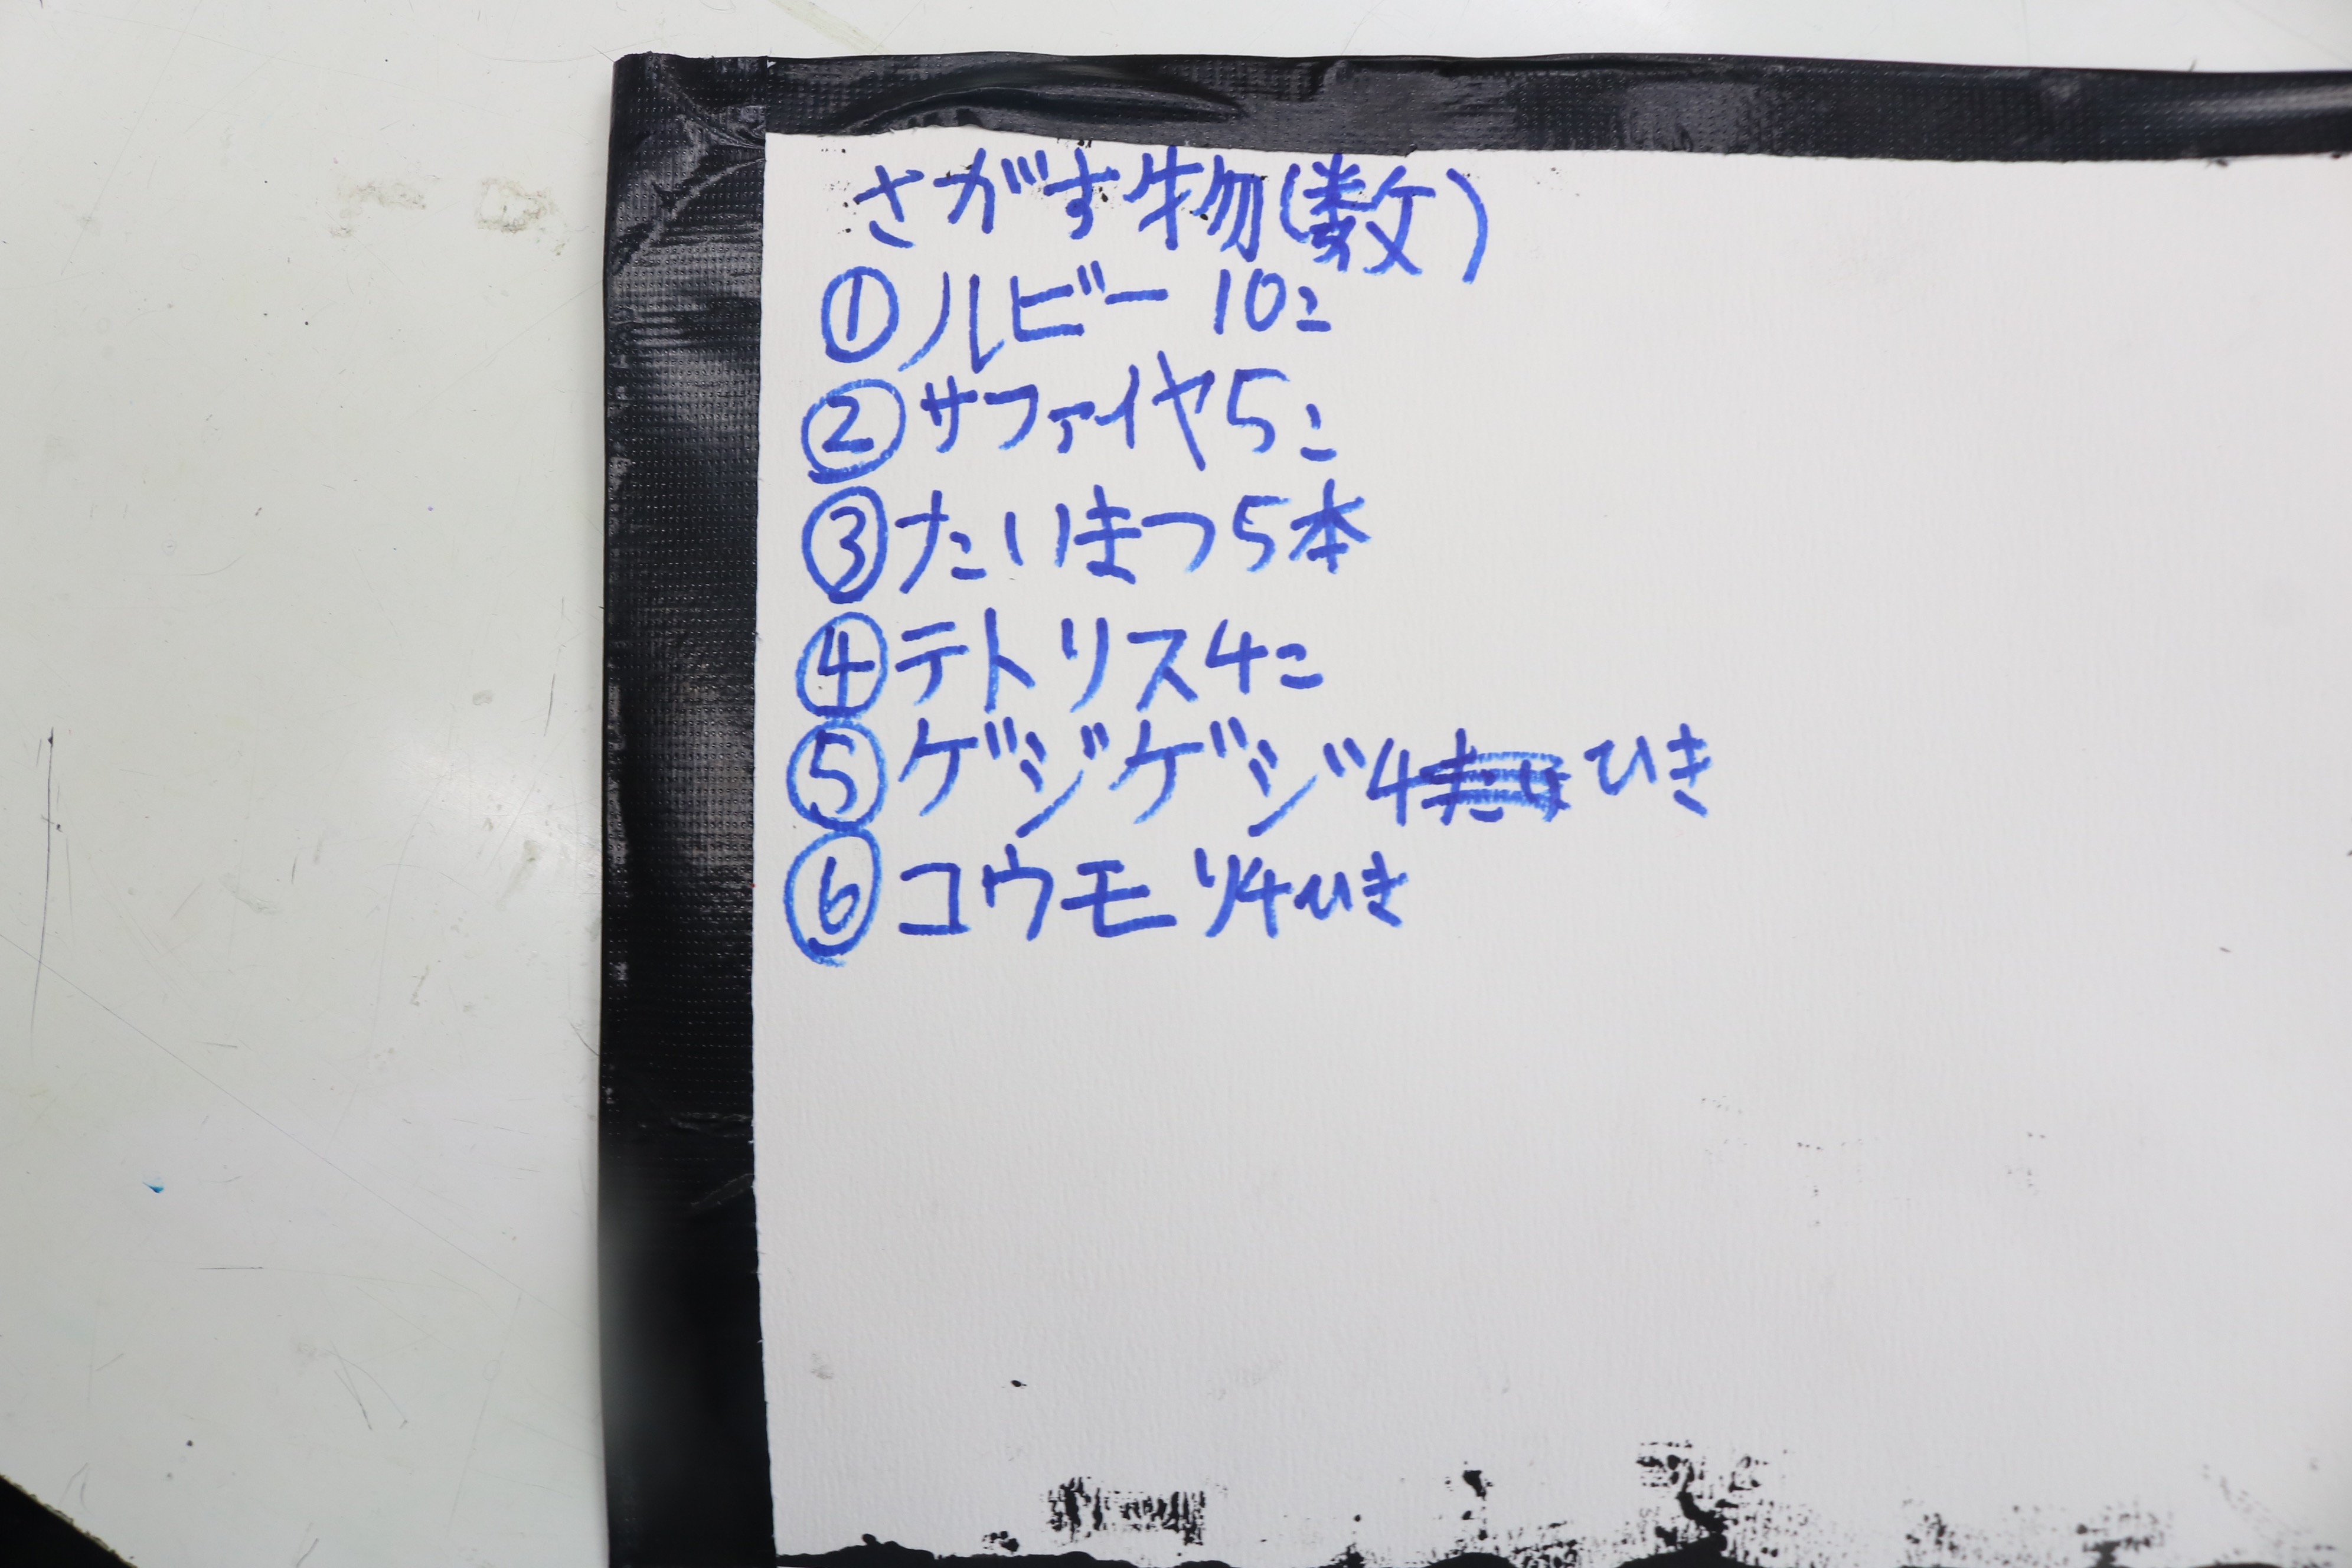 さがす物(数)
①ルビー 10こ
②サファイヤ5こ
③たいまつ5本
④テトリス4こ
⑤ゲジゲジ4ひき
⑥コウモリ4ひき